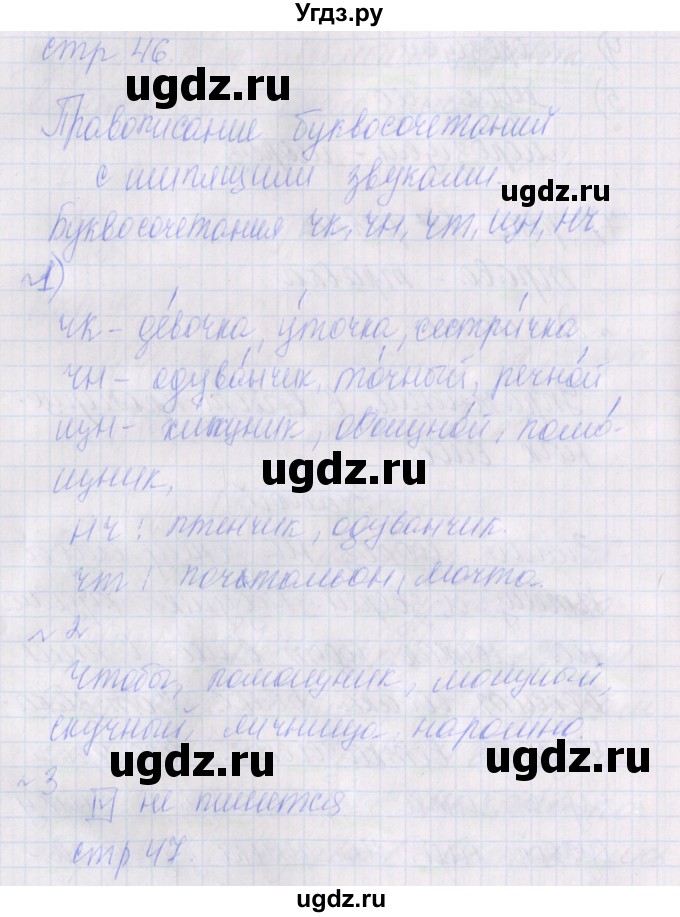 Угдз.ру
стр 46.
ugdz.ru
Правописание буквосочетаний
с шипящими звуками.
ugdz.ru
Буквосочетания чк, чн, чт, щн, нч.
~1)
чк - де́вочка, у́точка, сестри́чка
чн - одува́нчик, то́чный, речно́й
щн - хищник, овощно́й, помо́-
щник,
ugdz.ru
нч: птенчик, одуванчик.
чт: почтальон, мачта.
ugdz.ru
~2
Чтобы, помощник, мощный,
скучный, яичница, нарошно.
ugdz.ru
ugdz.ru
~3
не пишется
стр 47.
ugdz.ru
ugdz.ru